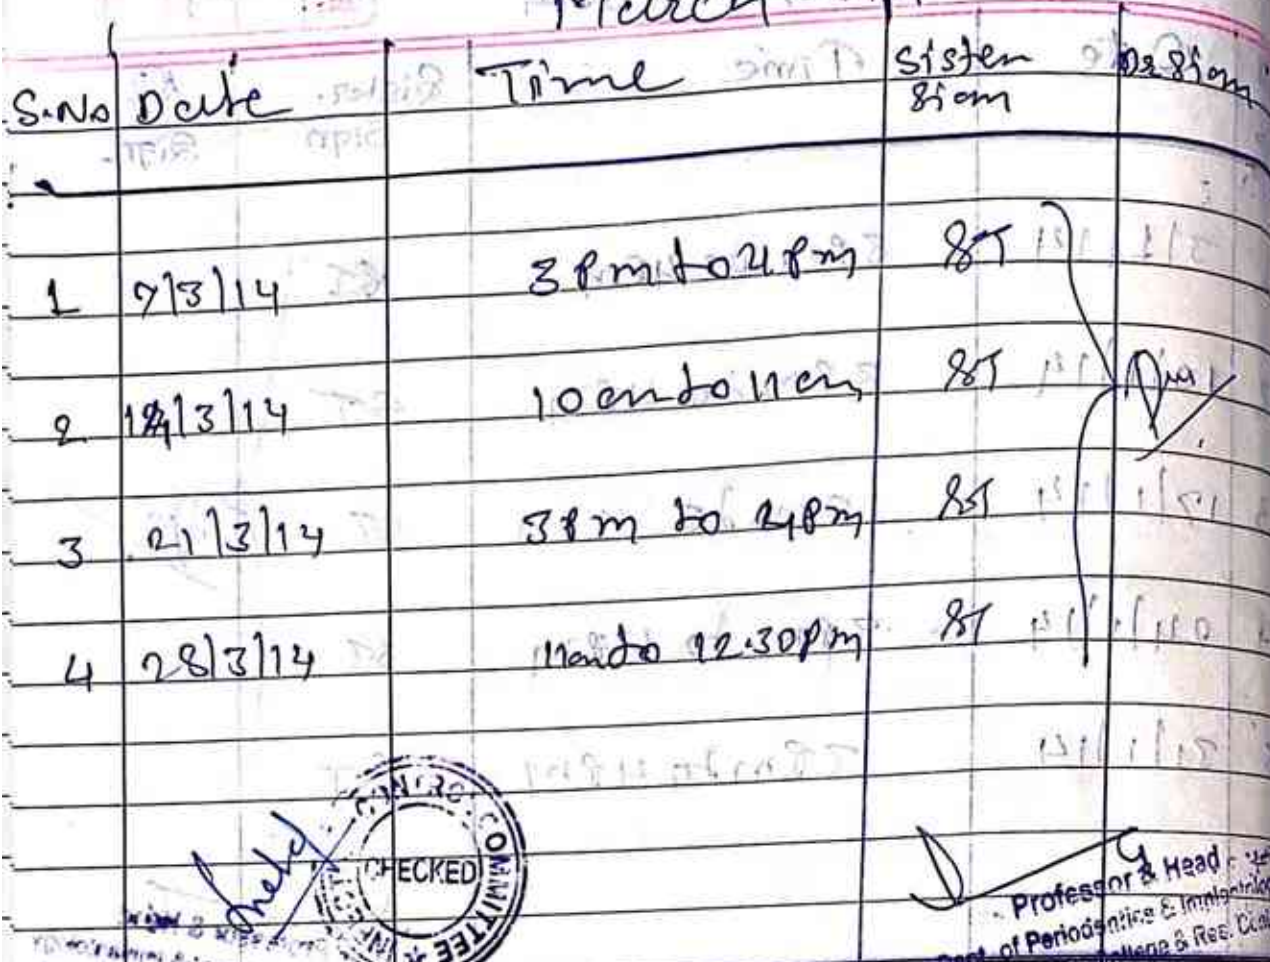 March
S.No Date Time Sisten Sign Dr Sign
1 7/3/14 3 Pm to 4 Pm ST
2 14/3/14 10 am to 11 am ST
3 21/3/14 3 Pm to 4 Pm ST
4 28/3/14 11 am to 12.30 Pm ST
CONTROL COMMITTEE
CHECKED
Professor & Head
Dept. of Periodontics & Implantology
College & Res.